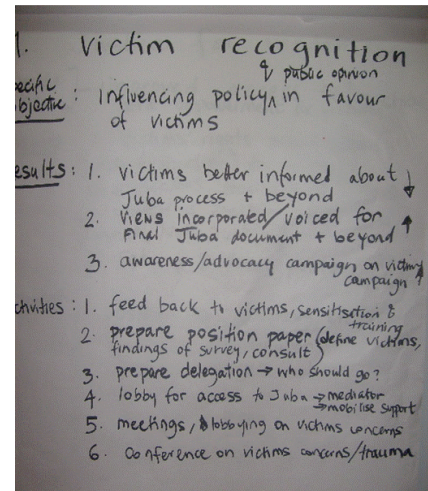 1. victim recognition
& public opinion
ecific
bjective: influencing policy ^ in favour
of victims
esults: 1. victims better informed about ↓
Juba process + beyond
2. views incorporated/voiced for ↑
Final Juba document + beyond
3. awareness/advocacy campaign on victims
campaign
ctivities: 1. feed back to victims, sensitisation &
training
2. prepare position paper (define victims,
findings of survey, consult)
3. prepare delegation → who should go?
4. lobby for access to Juba → mediator
→ mobilise support
5. meetings, lobbying on victims concerns
6. Conference on victims concerns/trauma